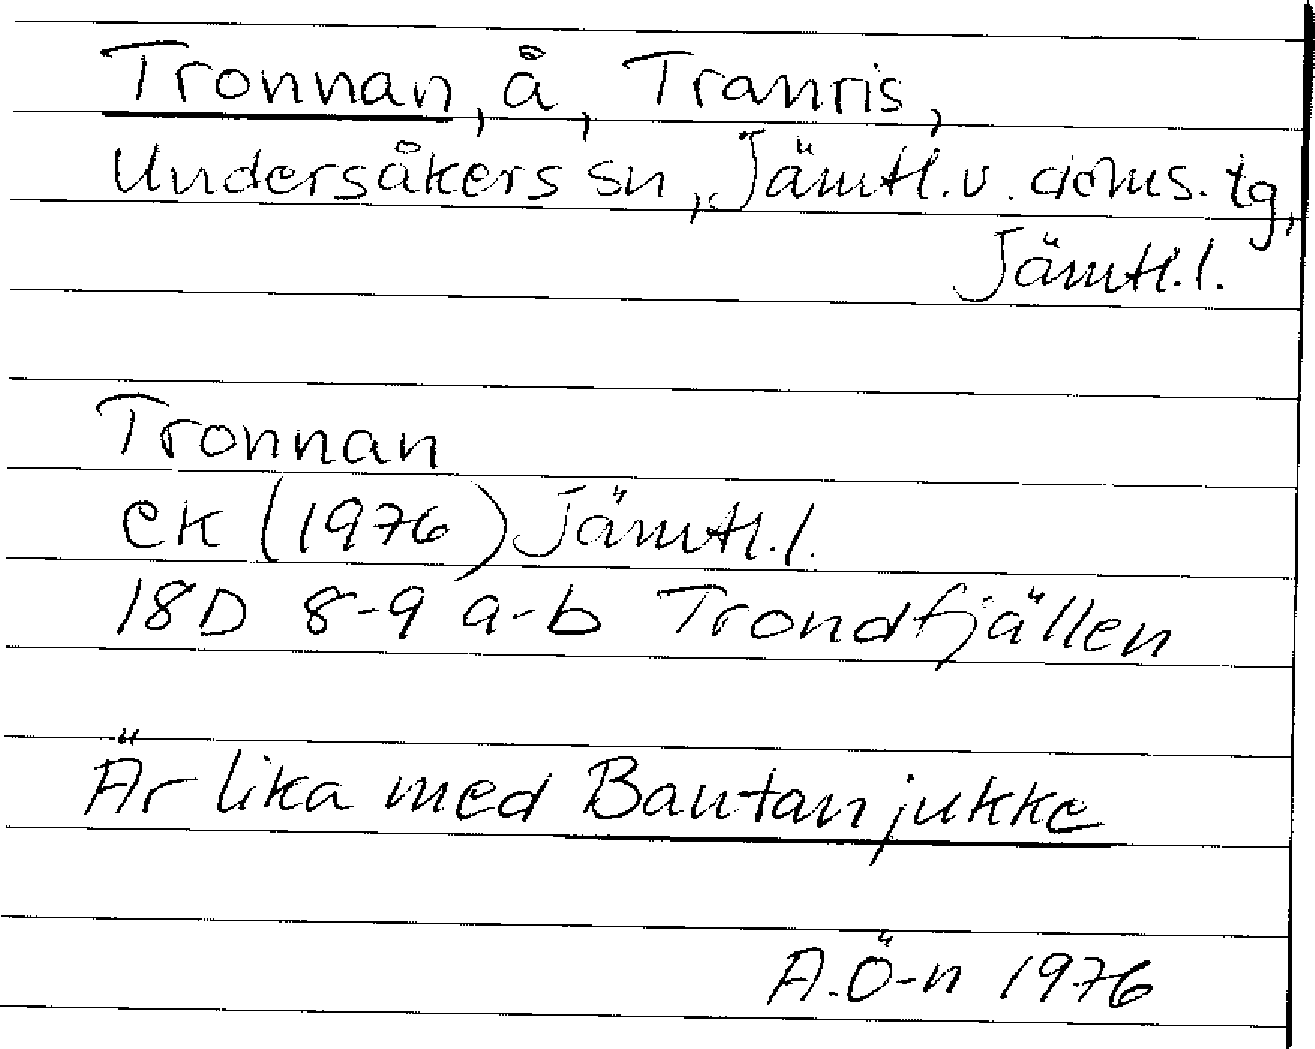 Tronnan, å, Tranris,
Undersåkers sn, Jämtl. v. doms. tg,
Jämtl. l.
Tronnan
ek (1976) Jämtl. l.
18D 8-9 a-b Trondfjällen
Är lika med Bautanjukke
A.Ö-n 1976